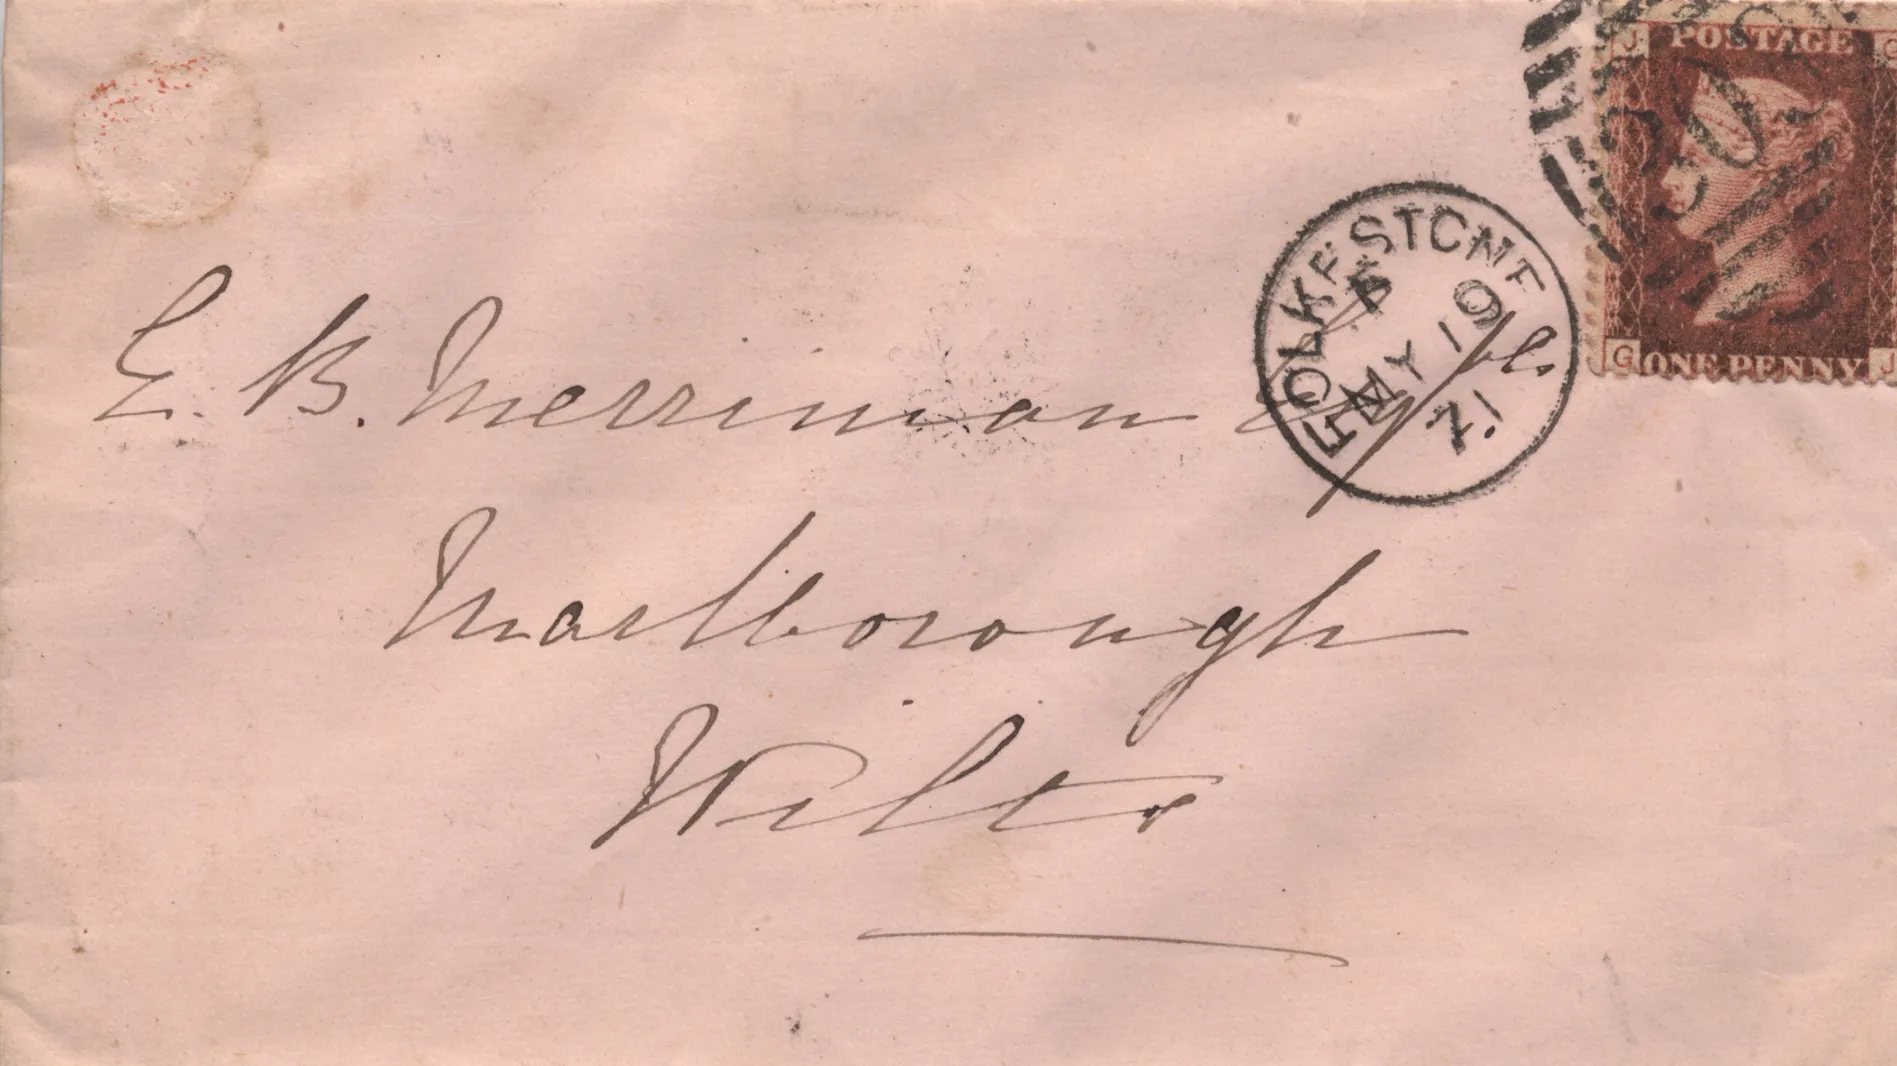 J POSTAGE G
300
G ONE PENNY J
FOLKESTONE
A
MY 19
71
E. B. Merriman Esqre
Marlborough
Wilts